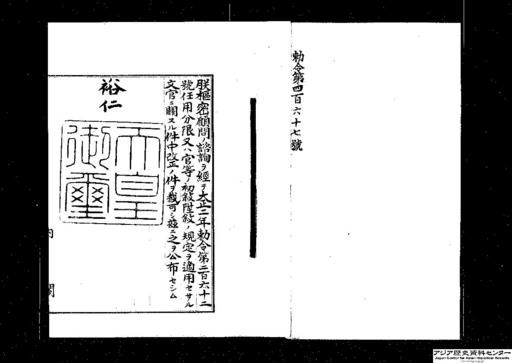 勅令第四百六十七號
朕樞密顧問ノ諮詢ヲ經テ大正二年勅令第二百六十二
號任用分限又ハ官等ノ初敍陞敍ノ規定ヲ適用セサル
文官ニ關スル件中改正ノ件ヲ裁可シ茲ニ之ヲ公布セシム
裕仁
天皇御璽
内閣
アジア歴史資料センター
Japan Center for Asian Historical Records